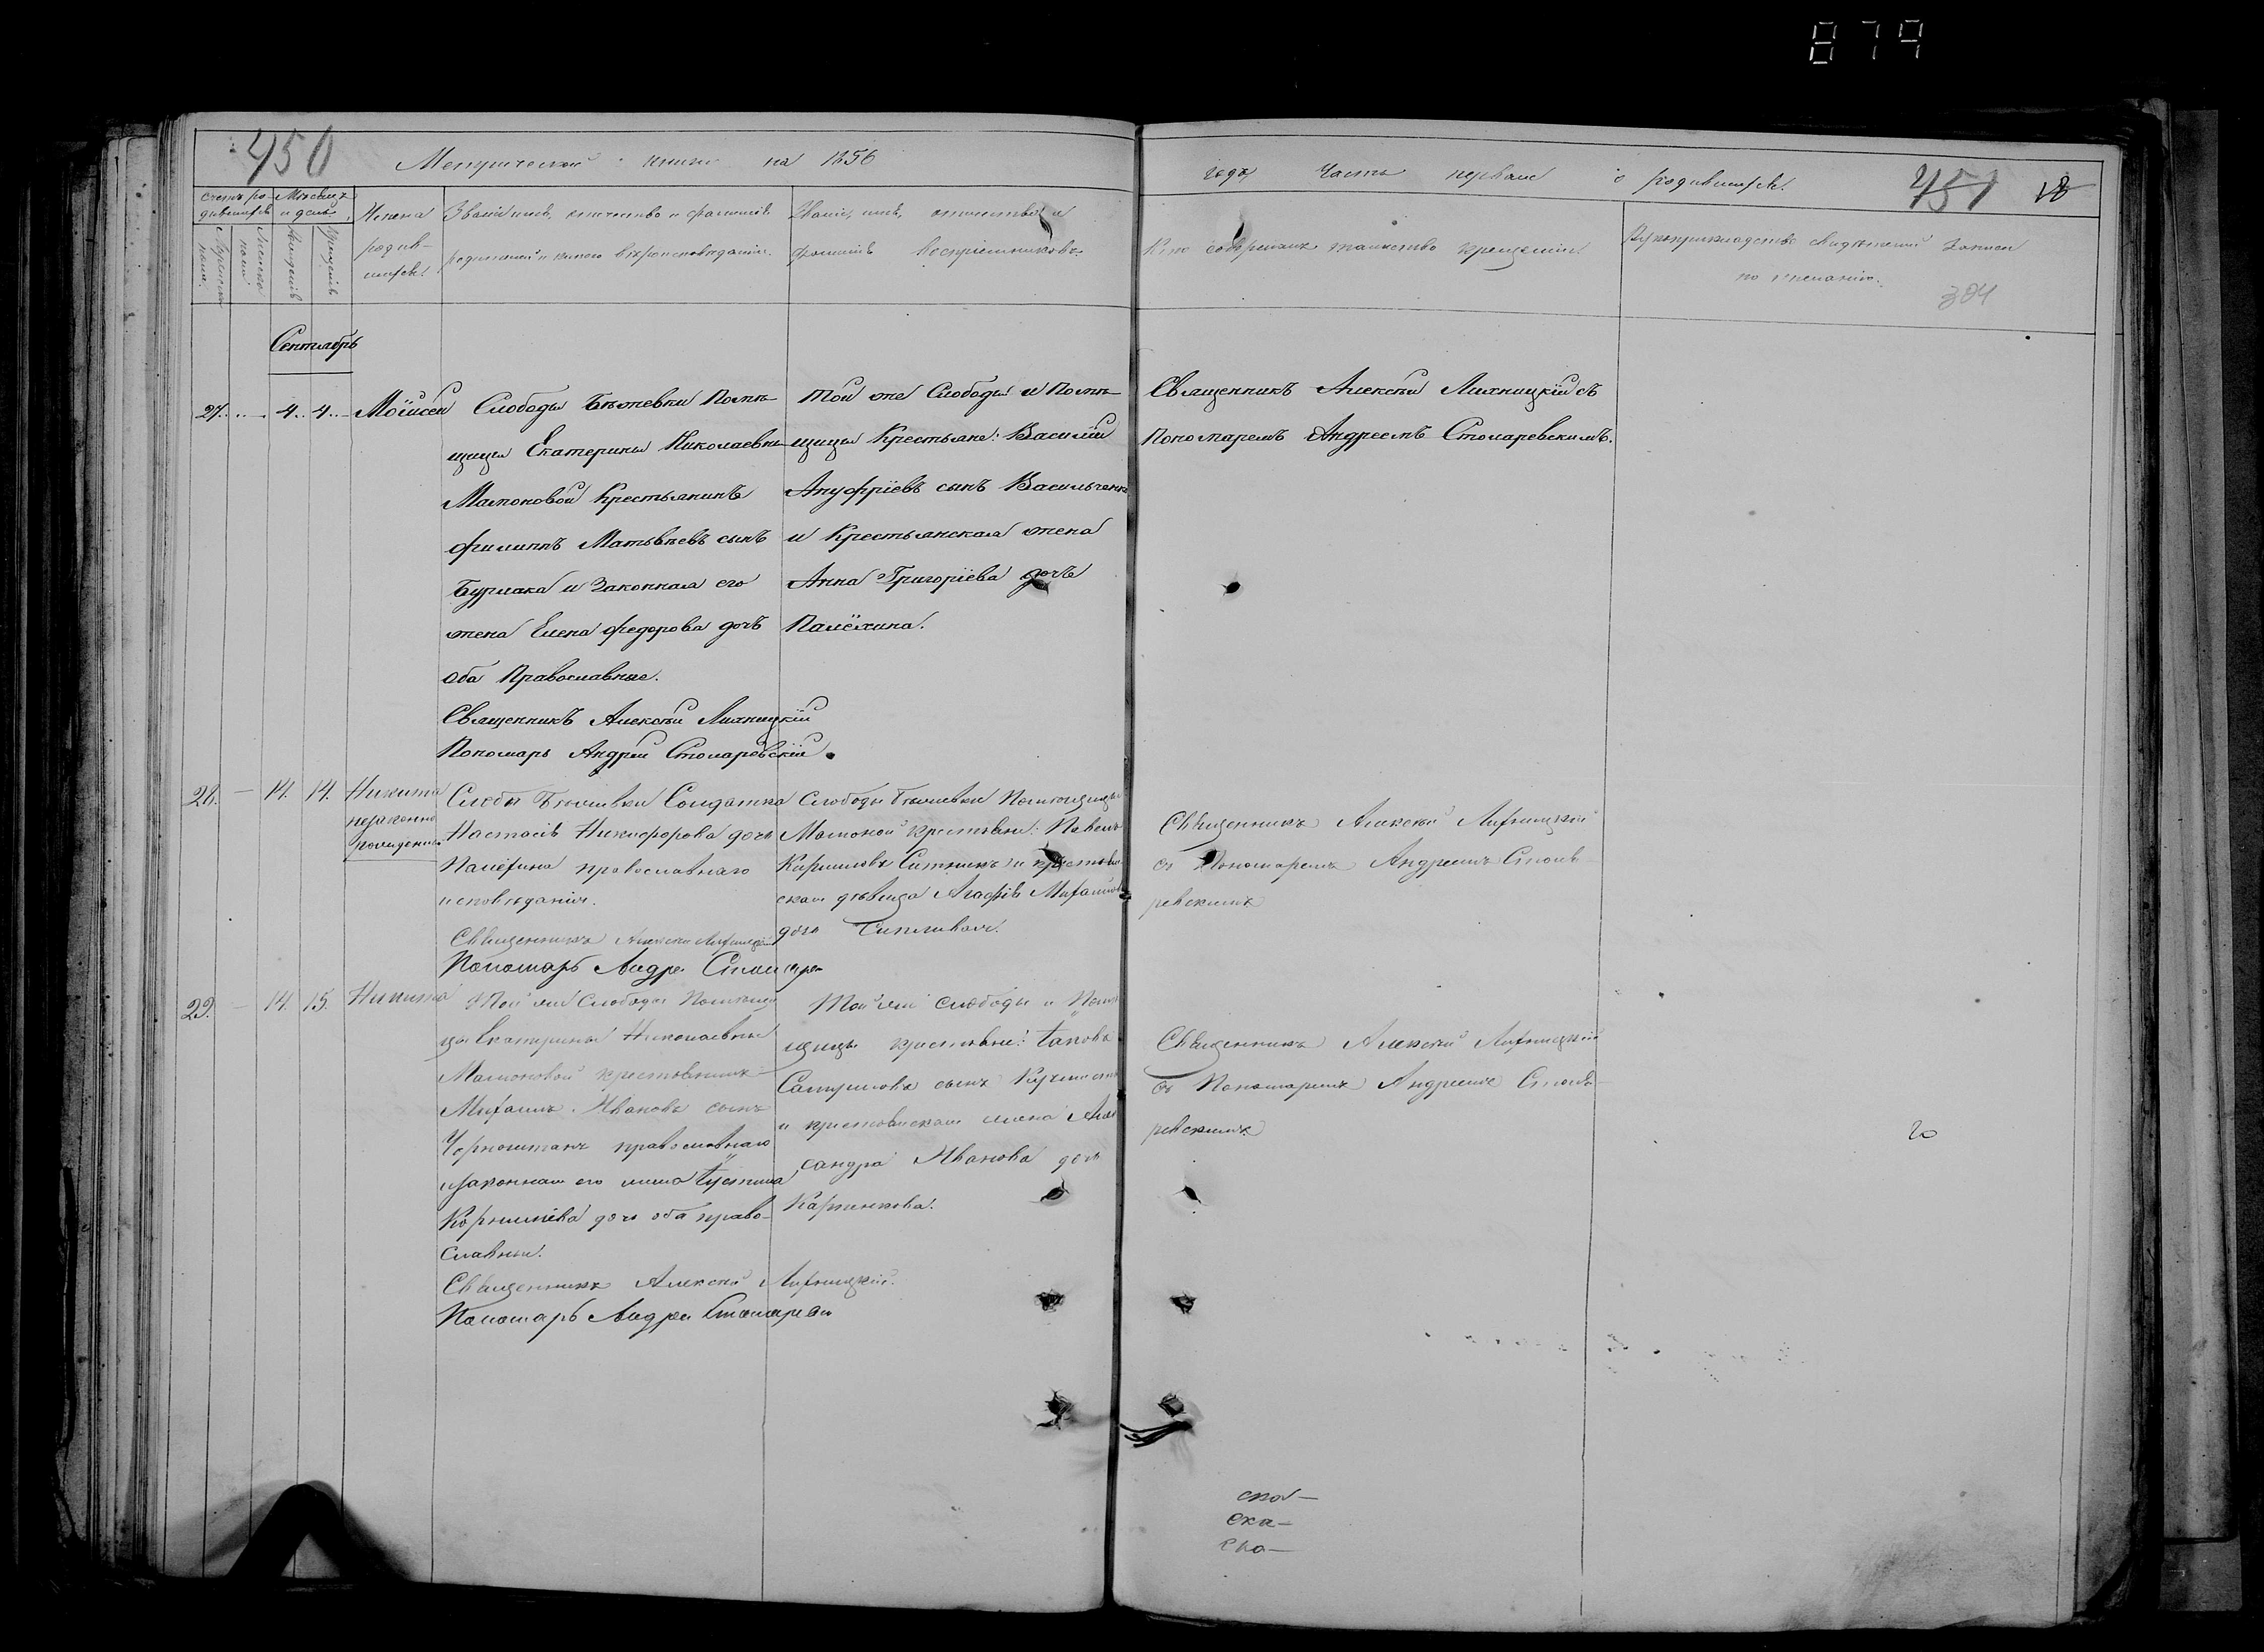 879
450
Метрической книги на 1856
года Часть первая о родившихся.
451
18
Счетъ ро-
дившихся
Мѣсяцъ
и день
Мужеска
пола.
Женска
пола.
Рожденія
Крещенія
Имена
родив-
шихся.
Званіе, имя, отчество и фамилія
родителей и какого вѣроисповѣданія.
Званіе, имя, отчество и
фамилія воспріемниковъ
Кто совершалъ таинство крещенія.
Рукоприкладство свидѣтелей записи
по желанію.
304
Сентябрь
27. 4. 4. Моѵсей
Слободы Бѣловки Помѣ-
щицы Екатерины Николаевны
Мамоновой Крестьянинъ
Филиппъ Матвѣевъ сынъ
Бурлака и Законная его
жена Елена Федорова дочь
оба Православные.
Священникъ Алексѣй Лихницкій
Пономарь Андрей Столяревскій.
Той же Слободы и Помѣ-
щицы Крестьяне: Василій
Ануфріевъ сынъ Васильченко
и Крестьянская жена
Анна Григоріева дочь
Палёхина.
Священникъ Алексѣй Лихницкій съ
Пономаремъ Андреемъ Столяревскимъ.
28. — 14. 14. Никита
незаконно
рожденный
Слободы Солдатка
Настасія Никифорова дочь
Палёхина православнаго
исповѣданія.
Священникъ Алексѣй Лихницкій
Пономарь Андрей Столяре
Слободы Помѣщицы
Мамоновой крестьяне: Павелъ
Кириловъ Ситникъ и крестьян-
ская дѣвица Агафія Михайлова
дочь
Священникъ Алексѣй Лихницкій
съ Пономаремъ Андреемъ Столя-
ревскимъ
29. — 14. 15. Никита
Той же Слободы Помѣщи
цы Екатерины Николаевны
Мамоновой крестьянинъ
Михаилъ Ивановъ сынъ
православнаго
и законная его жена Іустина
Корниліева дочь оба право-
славные.
Священникъ Алексѣй Лихницкій.
Пономарь Андрей Столяревск
Той же слободы и Помѣ
щицы крестьяне: Іаковъ
сынъ
и крестьянская жена Алек
сандра Иванова дочь
Карпенкова.
Священникъ Алексѣй Лихницкій
съ Пономаремъ Андреемъ Столя-
ревскимъ
ска—
ска—
ска—